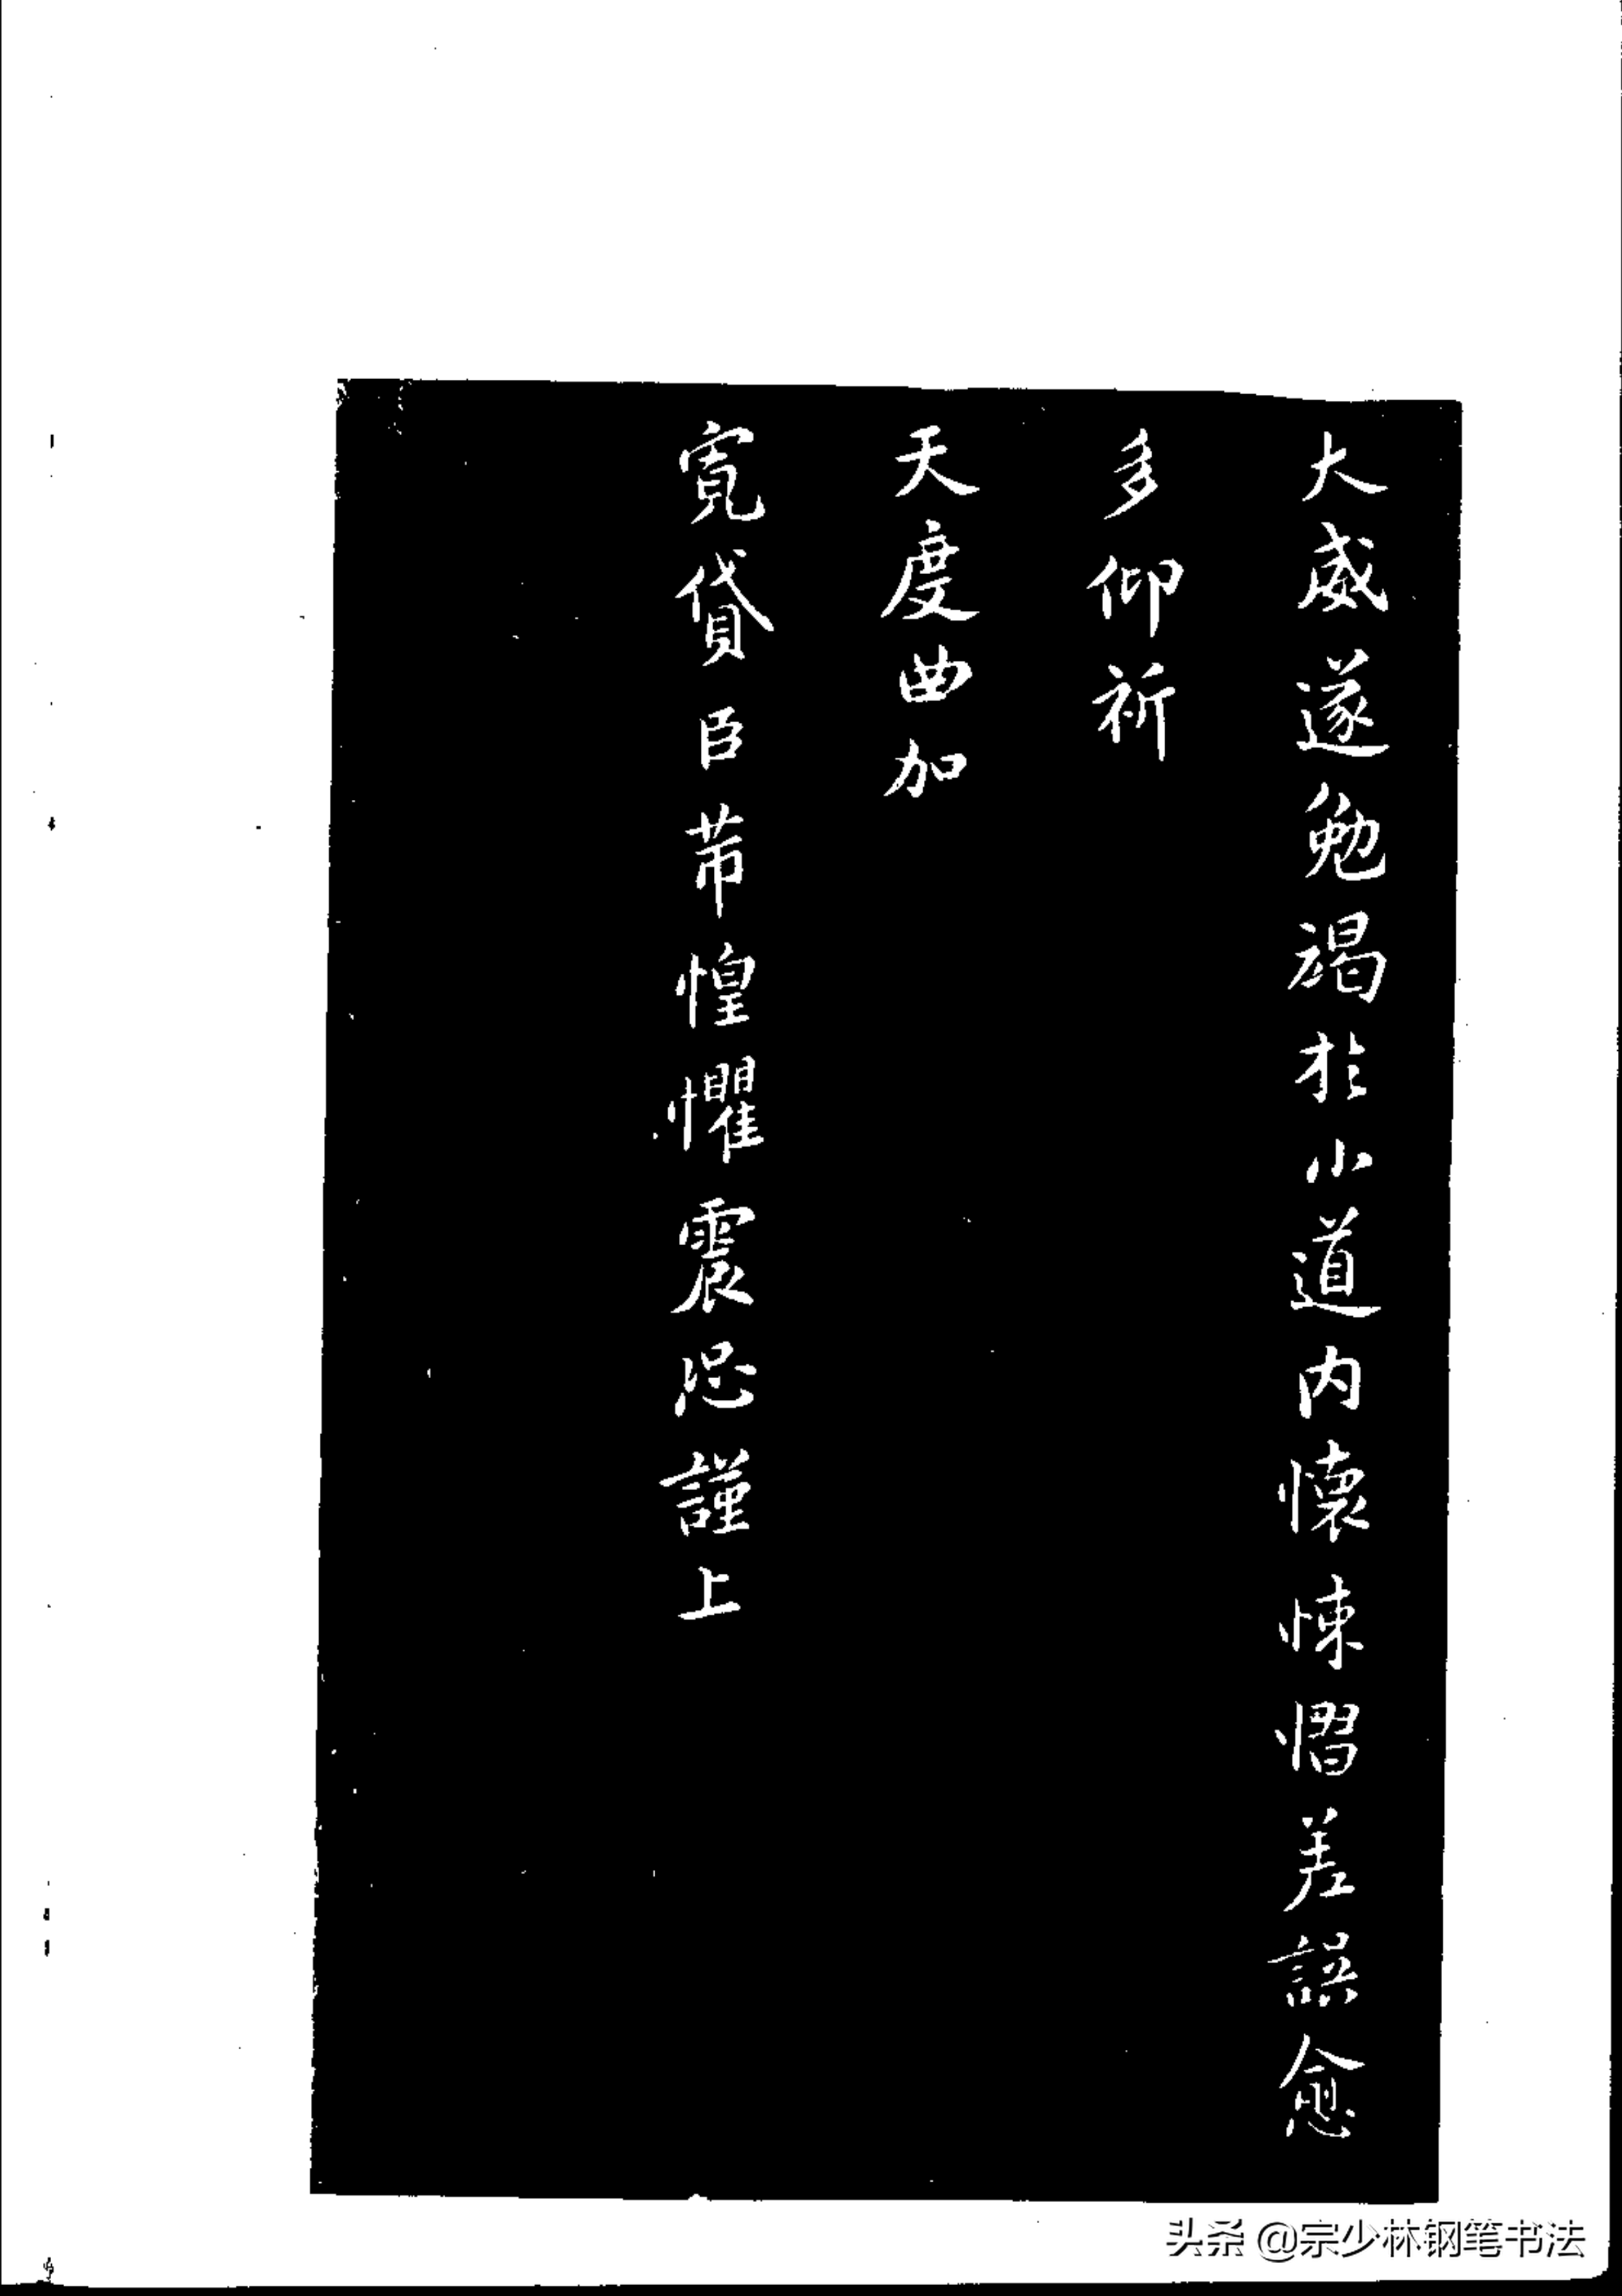 大威遂勉竭於小道内懷悚慴差誤愈
多仰祈
天度曲加
寬貸臣芾惶懼震恐謹上
头条 @宗少林钢笔书法